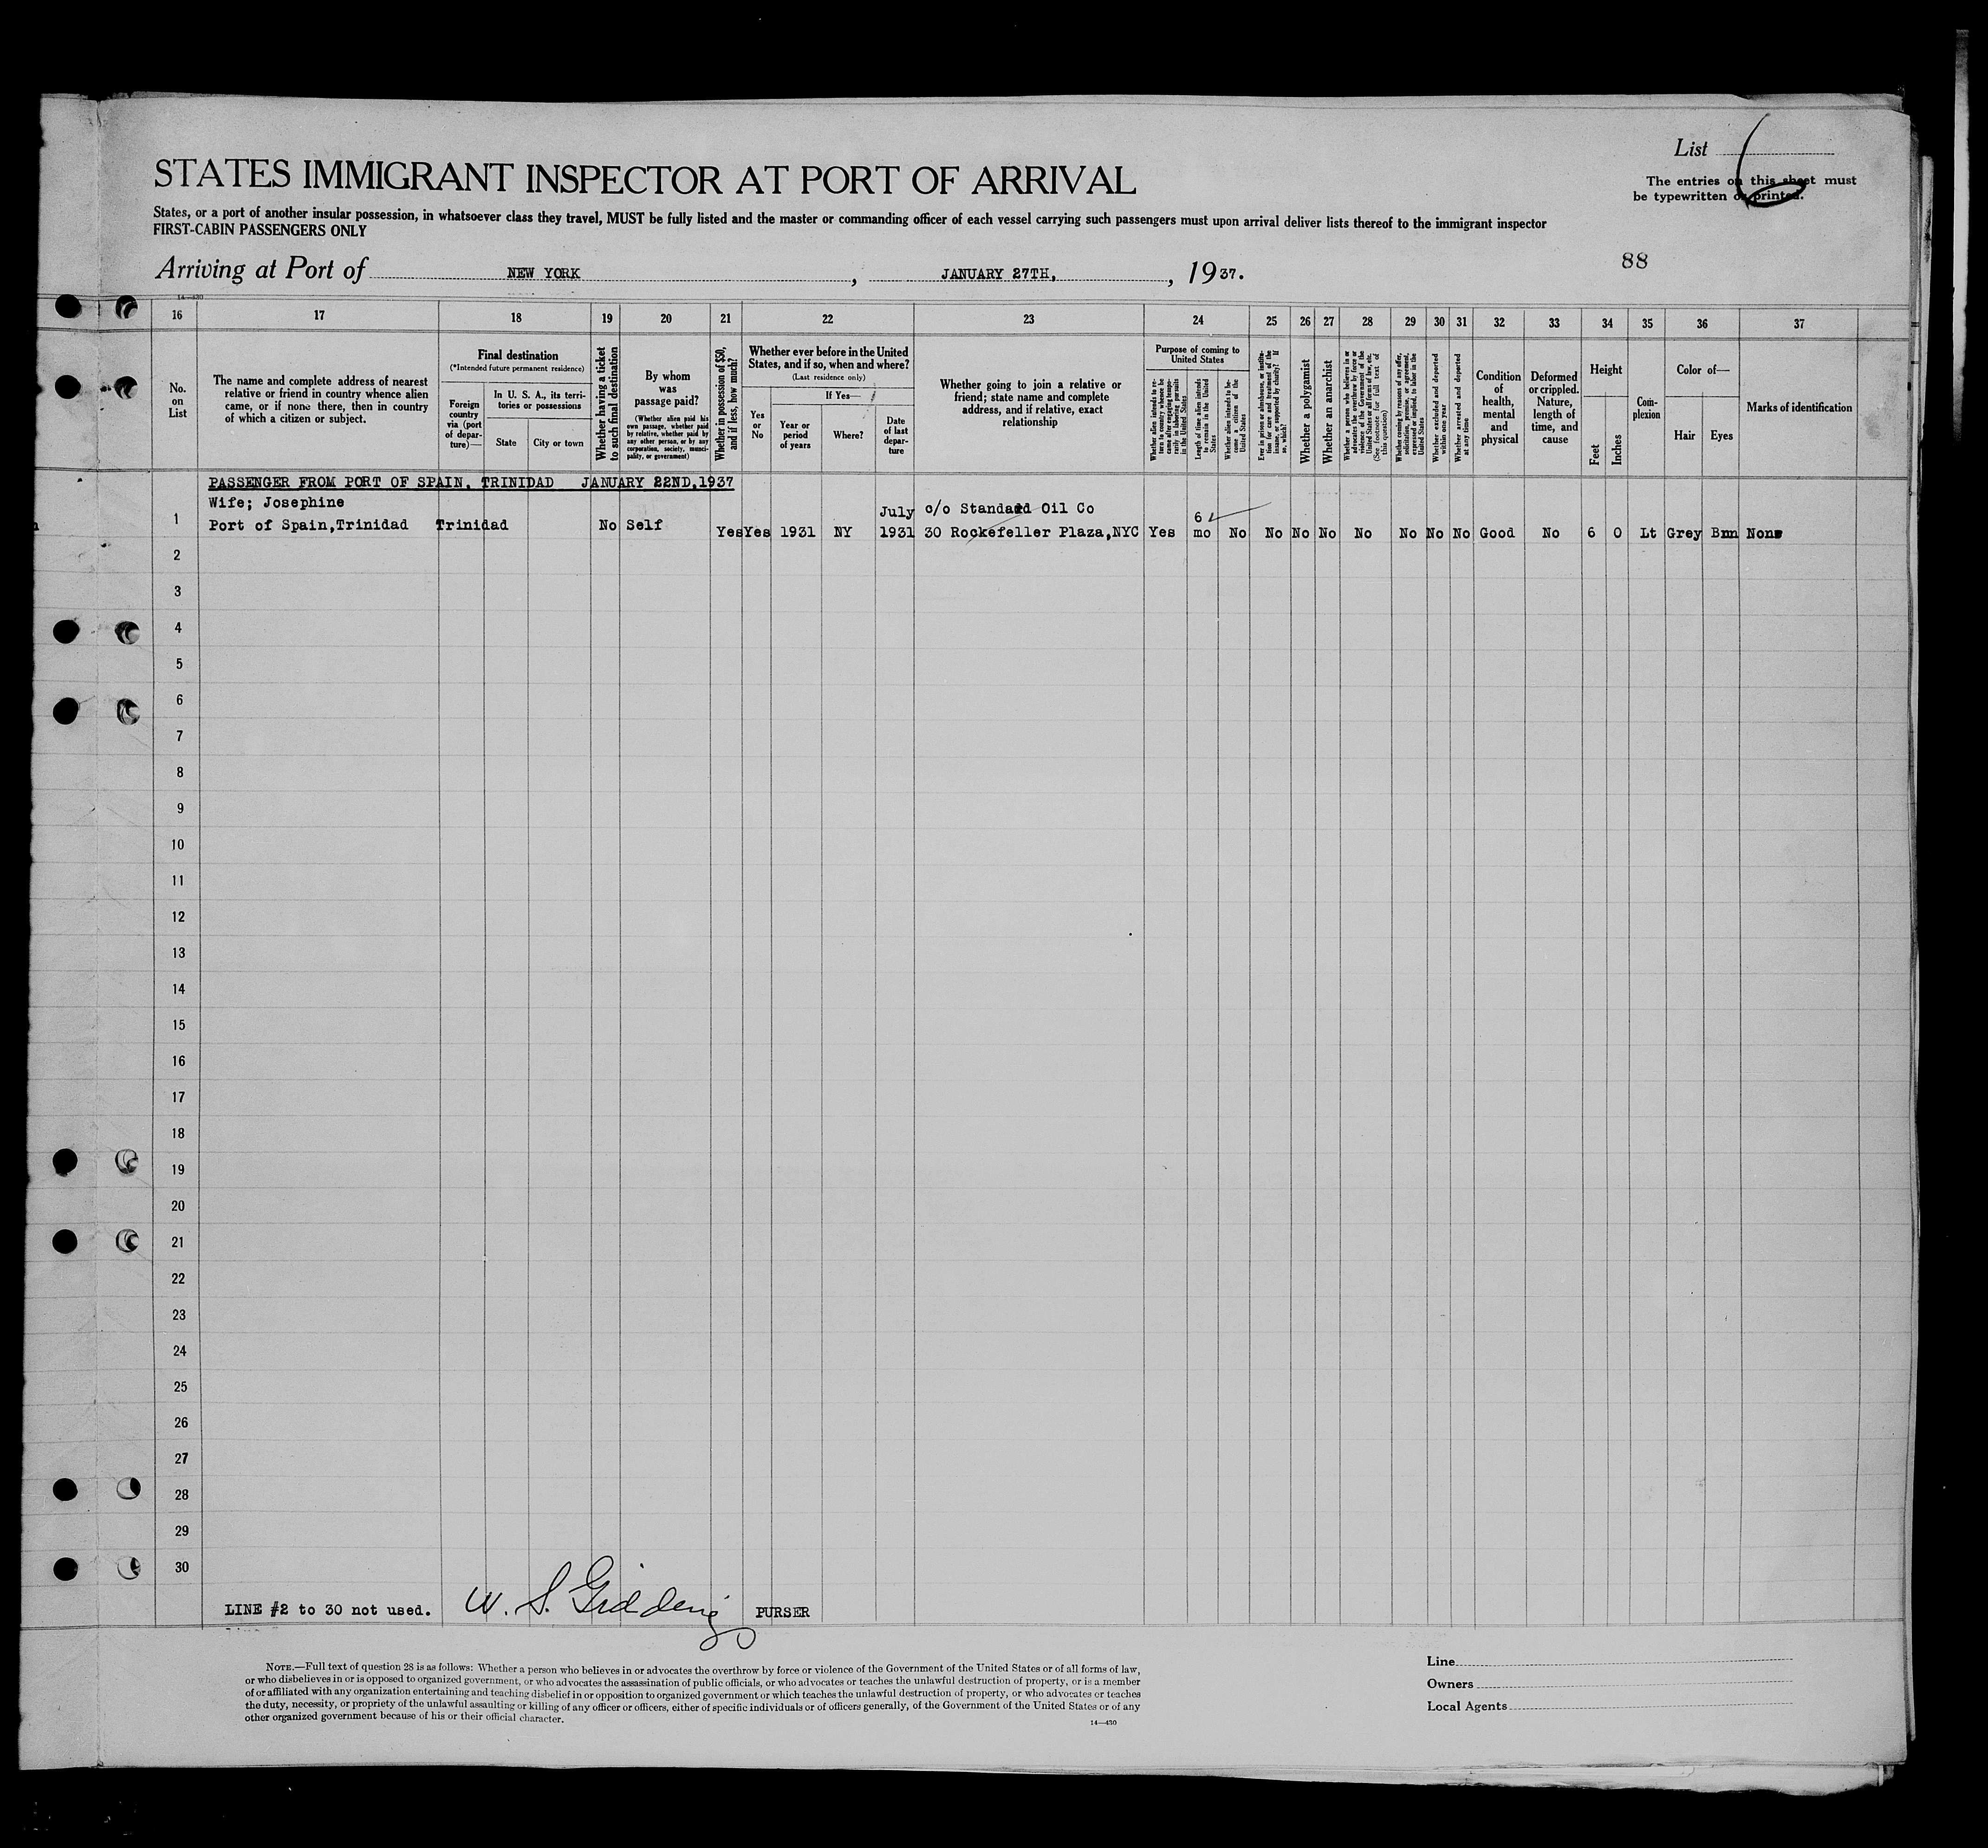 List 6
STATES IMMIGRANT INSPECTOR AT PORT OF ARRIVAL
The entries on this sheet must
be typewritten or printed.
States, or a port of another insular possession, in whatsoever class they travel, MUST be fully listed and the master or commanding officer of each vessel carrying such passengers must upon arrival deliver lists thereof to the immigrant inspector
FIRST-CABIN PASSENGERS ONLY
Arriving at Port of NEW YORK, JANUARY 27TH, , 1937.
88
14—430
16 17 18 19 20 21 22 23 24 25 26 27 28 29 30 31 32 33 34 35 36 37
No.
on
List
The name and complete address of nearest
relative or friend in country whence alien
came, or if none there, then in country
of which a citizen or subject.
Final destination
(*Intended future permanent residence)
Foreign
country
via (port
of depar-
ture)—
In U. S. A., its terri-
tories or possessions
State
City or town
Whether having a ticket
to such final destination
By whom
was
passage paid?
(Whether alien paid his
own passage, whether paid
by relative, whether paid by
any other person, or by any
corporation, society, munici-
pality, or government)
Whether in possession of $50,
and if less, how much?
Whether ever before in the United
States, and if so, when and where?
(Last residence only)
Yes
or
No
If Yes—
Year or
period
of years
Where?
Date
of last
depar-
ture
Whether going to join a relative or
friend; state name and complete
address, and if relative, exact
relationship
Purpose of coming to
United States
Whether alien intends to re-
turn to country whence he
came after engaging tempo-
rarily in laboring pursuits
in the United States
Length of time alien intends
to remain in the United
States
Whether alien intends to be-
come a citizen of the
United States
Ever in prison or almshouse, or institu-
tion for care and treatment of the
insane, or supported by charity? If
so, which?
Whether a polygamist
Whether an anarchist
Whether a person who believes in or
advocates the overthrow by force or
violence of the Government of the
United States or all forms of law, etc.
(See footnote for full text of
this question)
Whether coming by reasons of any offer,
solicitation, promise, or agreement,
expressed or implied, to labor in the
United States
Whether excluded and deported
within one year
Whether arrested and deported
at any time
Condition
of
health,
mental
and
physical
Deformed
or crippled.
Nature,
length of
time, and
cause
Height
Feet
Inches
Com-
plexion
Color of—
Hair
Eyes
Marks of identification
PASSENGER FROM PORT OF SPAIN, TRINIDAD JANUARY 22ND,1937
Wife; Josephine
July c/o Standard Oil Co
6
1 Port of Spain,Trinidad Trinidad No Self
Yes Yes 1931 NY 1931 30 Rockefeller Plaza,NYC Yes mo No No No No No No No No Good No 6 0 Lt Grey Brn None
2
3
4
5
6
7
8
9
10
11
12
13
14
15
16
17
18
19
20
21
22
23
24
25
26
27
28
29
30
LINE #2 to 30 not used. W. S. Giddings PURSER
NOTE.—Full text of question 28 is as follows: Whether a person who believes in or advocates the overthrow by force or violence of the Government of the United States or of all forms of law,
or who disbelieves in or is opposed to organized government, or who advocates the assassination of public officials, or who advocates or teaches the unlawful destruction of property, or is a member
of or affiliated with any organization entertaining and teaching disbelief in or opposition to organized government or which teaches the unlawful destruction of property, or who advocates or teaches
the duty, necessity, or propriety of the unlawful assaulting or killing of any officer or officers, either of specific individuals or of officers generally, of the Government of the United States or of any
other organized government because of his or their official character.
14—430
Line
Owners
Local Agents